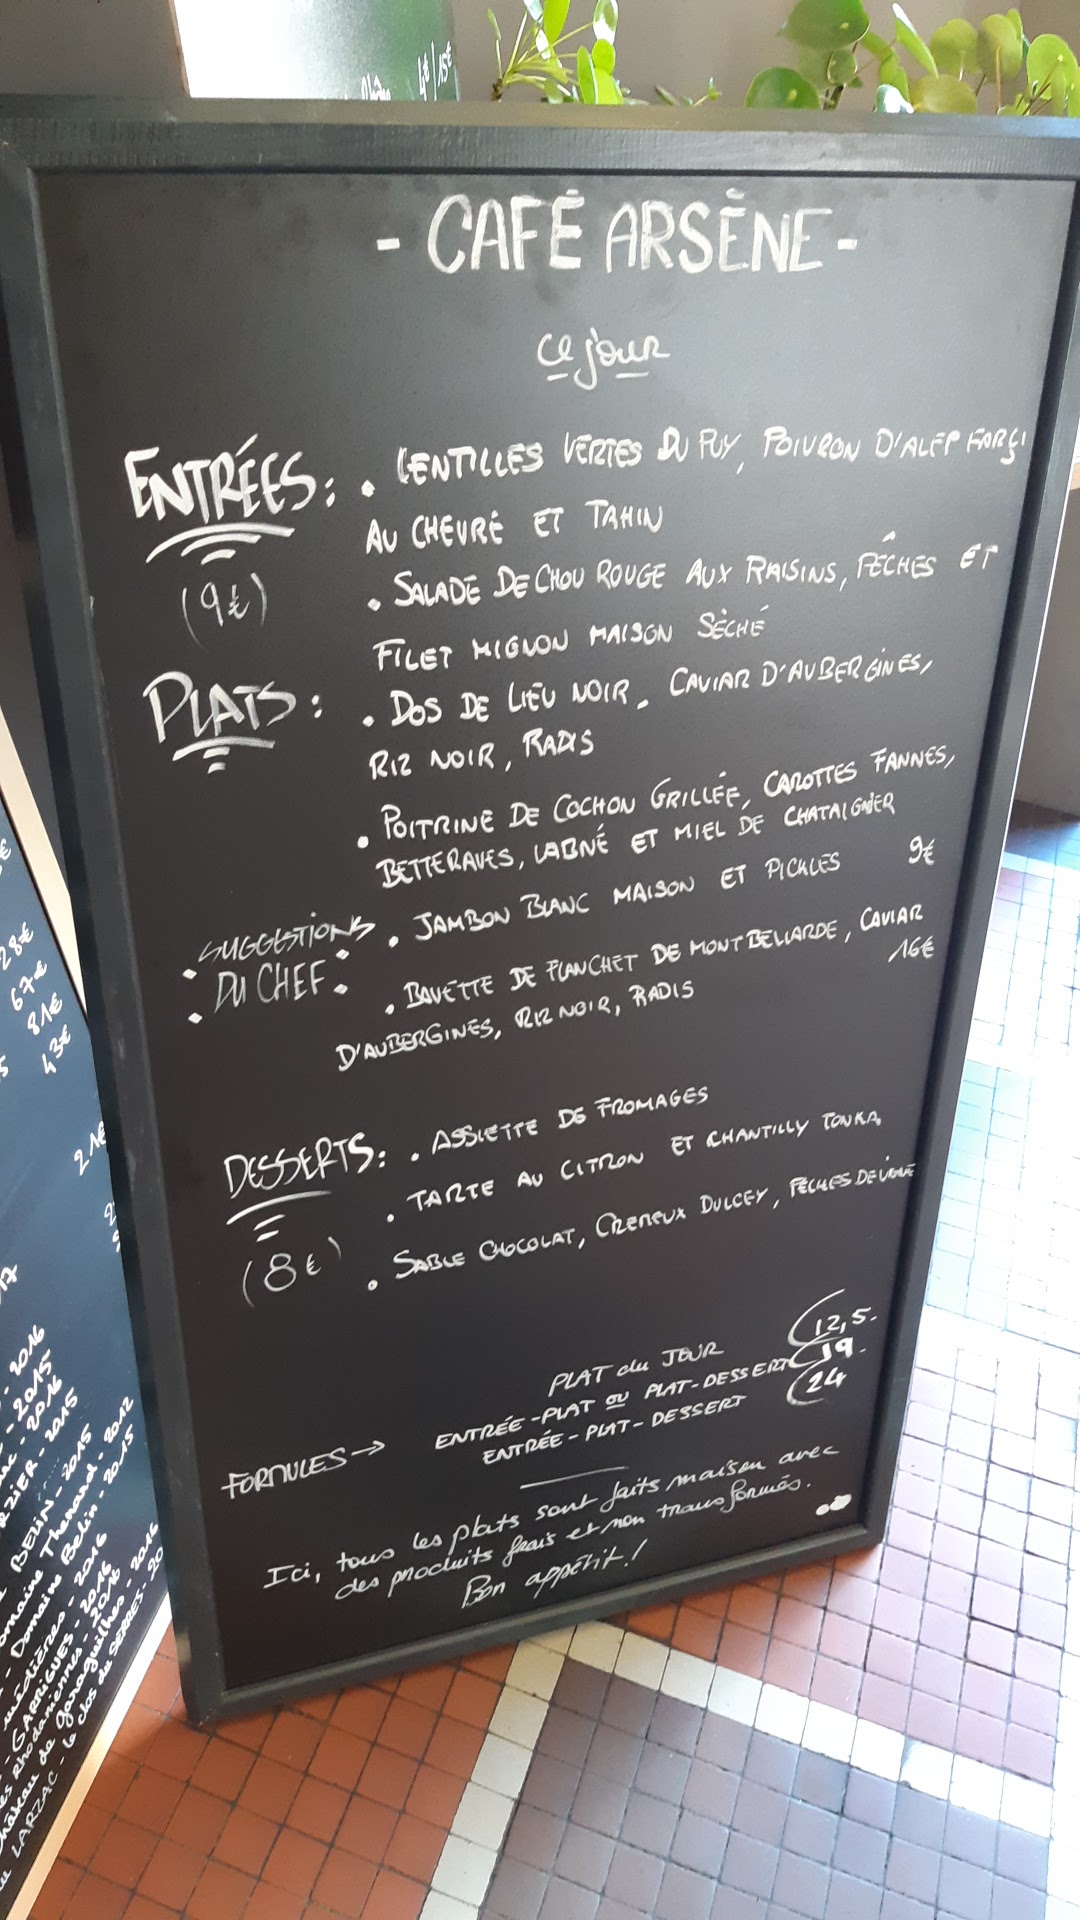 4€/15€
- CAFÉ ARSÈNE -
ce jour
ENTRÉES : • LENTILLES VERTES DU PUY, POIVRON D'ALEP FARÇI
AU CHEVRE ET TAHIN
(9€) • SALADE DE CHOU ROUGE AUX RAISINS, PÊCHES ET
FILET MIGNON MAISON SÈCHÉ
PLATS : • DOS DE LIEU NOIR. CAVIAR D'AUBERGINES,
RIZ NOIR, RADIS
• POITRINE DE COCHON GRILLÉE, CAROTTES FANNES,
BETTERAVES, LABNÉ ET MIEL DE CHATAIGNIER
• SUGGESTIONS • JAMBON BLANC MAISON ET PICKLES 9€
• DU CHEF • • BAVETTE DE FLANCHET DE MONTBELLARDE, CAVIAR
D'AUBERGINES, RIZ NOIR, RADIS 16€
DESSERTS : • ASSIETTE DE FROMAGES
• TARTE AU CITRON ET CHANTILLY TONKA
(8€) • SABLE CHOCOLAT, CREMEUX DULCEY, PÊCHES DE VIGNE
PLAT du JOUR 12,5.
ENTRÉE-PLAT OU PLAT-DESSERT 19.
FORMULES → ENTRÉE-PLAT-DESSERT 24
Ici, tous les plats sont faits maison avec
des produits frais et non transformés.
Bon appétit!
28€
67€
81€
43€
21€
- 2016
- 2015
- 2016
- 2015
BELIN - 2015
Domaine Thenard - 2012
- Domaine Belin - 2015
- 2016
- GARRIGUES - 2016
Rhodaniennes - 2016
Château de - 2016
LARZAC - le clos du SERRES - 20